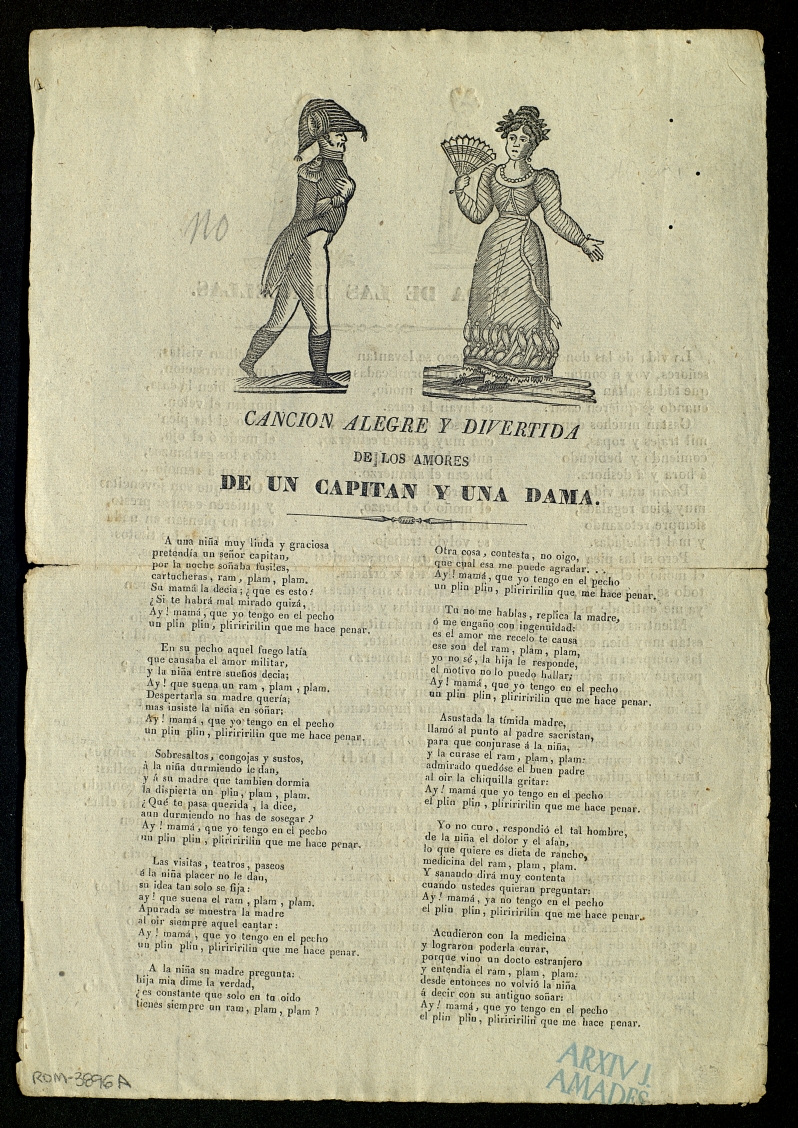 no
CANCION ALEGRE Y DIVERTIDA
DE LOS AMORES
DE UN CAPITAN Y UNA DAMA.
A una niña muy linda y graciosa
pretendía un señor capitan,
por la noche soñaba fusiles,
cartucheras, ram, plam, plam.
Su mamá la decia: ¿que es esto?
¿Si te habrá mal mirado quizá,
Ay! mamá, que yo tengo en el pecho
un plin plin, pliriririlin que me hace penar.
En su pecho aquel fuego latía
que causaba el amor militar,
y la niña entre sueños decia;
Ay! que suena un ram, plam, plam.
Despertarla su madre quería;
mas insiste la niña en soñar;
Ay! mamá, que yo tengo en el pecho
un plin plin, pliriririlin que me hace penar.
Sobresaltos, congojas y sustos,
á la niña durmiendo le dan,
y á su madre que tambien dormia
la dispierta un plin, plam, plam.
¿Qué te pasa querida, la dice,
aun durmiendo no has de sosegar?
Ay! mamá, que yo tengo en el pecho
un plin plin, pliriririlin que me hace penar.
Las visitas, teatros, paseos
á la niña placer no le dan,
su idea tan solo se fija:
ay! que suena el ram, plam, plam.
Apurada se muestra la madre
al oir siempre aquel cantar:
Ay! mamá, que yo tengo en el pecho
un plin plin, pliriririlin que me hace penar.
A la niña su madre pregunta:
hija mia dime la verdad,
¿es constante que solo en tu oido
tienes siempre un ram, plam, plam?
Otra cosa, contesta, no oigo,
que cual esa me puede agradar...
Ay! mamá, que yo tengo en el pecho
un plin plin, pliriririlin, que me hace penar.
Tu no me hablas, replica la madre,
ó me engaño con ingenuidad:
es el amor me recelo te causa
ese son del ram, plam, plam,
yo no sé, la hija le responde,
el motivo no lo puedo hallar;
Ay! mamá, que yo tengo en el pecho
un plin plin, pliriririlin que me hace penar.
Asustada la tímida madre,
llamó al punto al padre sacristan,
para que conjurase á la niña,
y la curase el ram, plam, plam:
admirado quedóse el buen padre
al oir la chiquilla gritar:
Ay! mamá que yo tengo en el pecho
el plin plin, pliriririlin que me hace penar.
Yo no curo, respondió el tal hombre,
de la niña el dolor y el afan,
lo que quiere es dieta de rancho,
medicina del ram, plam, plam.
Y sanando dirá muy contenta
cuando ustedes quieran preguntar:
Ay! mamá, ya no tengo en el pecho
el plin plin, pliriririlin que me hace penar.
Acudieron con la medicina
y lograron poderla curar,
porque vino un docto estranjero
y entendia el ram, plam, plam:
desde entonces no volvió la niña
á decir con su antiguo soñar:
Ay! mamá, que yo tengo en el pecho
el plin plin, pliriririlin que me hace penar.
ROM-3896A
ARXIV J.
AMADES